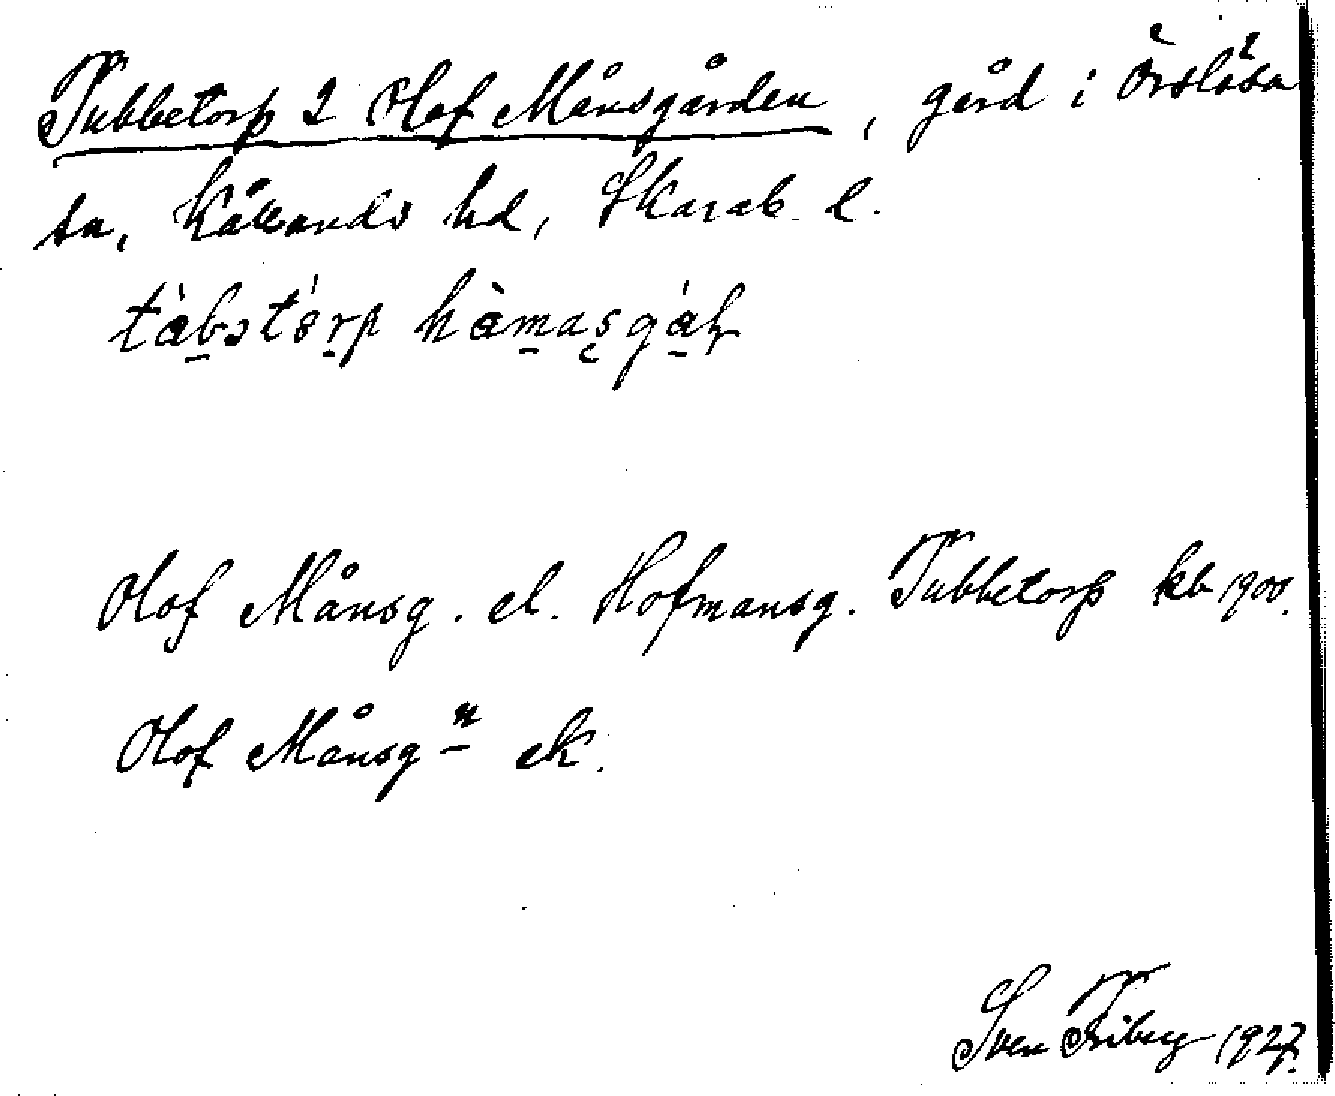 Tubbetorp 2 Olof Månsgården, gård i Örslösa
sn, Kållands hd, Skarab. l.
Olof Månsg. el. Hofmansg. Tubbetorp kb 1900.
Olof Månsgn ek.
Sven Friberg 1927.